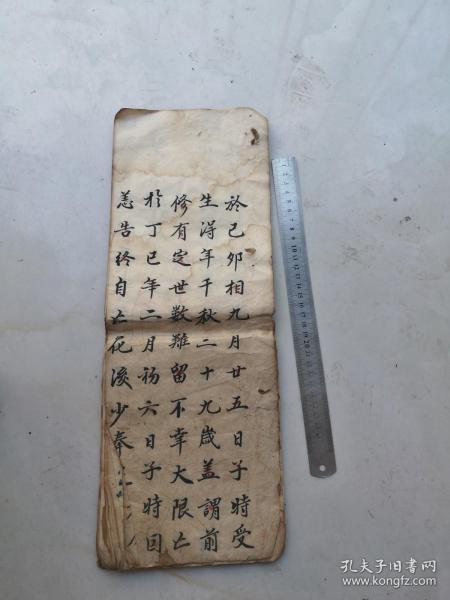 於己卯相九月廿五日子時受
生得年干秋二十九歲盖謂前
修有定世数難留不幸大限亡
於丁巳年二月初六日子時回
恙告终自亡化後少奉
孔夫子旧书网
www.kongfz.com